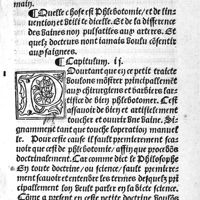 main.
¶ Quelle chose est Phlebotomie/ et de lin
uention et vtilite dicelle. Et de la difference
des vaines non pulsatiles aux arteres. Et
quelz docteurs nont iamais voulu cōsentir
aux saignees.
¶ Capitulum. ij.
Pourtant que en ce petit traicte
voulons mōstrer principallemēt
aux chirurgiens et barbiers lar
tifice de bien phlebotomer. Cest
assauoir de bien et artificiellement
toucher et ouurir vne vaine. Si-
gnamment tant que touche loperation manuel
le. Pour ceste cause il fault premierement sca-
uoir que cest de phlebotomie/ affin que procedōs
doctrinalement. Car comme dict le Philosophe
En toute doctrine/ ou science/ fault premiere-
ment scauoir et entendre les termes desquelz prī
cipallement lon veult parler en la dicte science.
Cōme a present en ceste petite doctrine voulōs